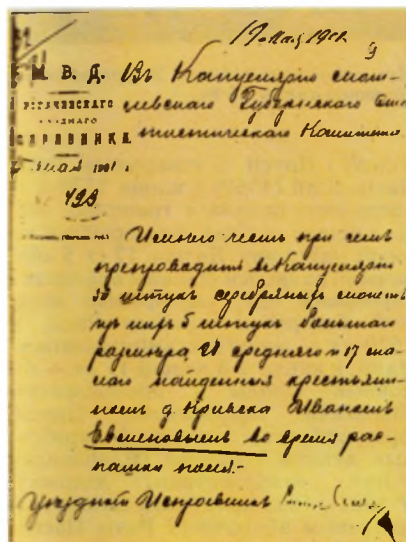 17 Мая 1901.
9
М. В. Д.
РОГАЧЕВСКАГО
УѢЗДНАГО
ИСПРАВНИКА
мая 1901 г.
Въ Канцелярію Моги-
левскаго Губернскаго Ста-
тистическаго Комитета
Имѣю честь при семъ
препроводить въ Канцелярію
штукъ серебряныхъ монетъ
изъ нихъ 5 штукъ большаго
размѣра, среднего и 17 ма-
лаго найденныя крестьяни-
номъ д. Кривска Иваномъ
Евменовымъ во время рас-
пашки поля.-
Уѣздный Исправникъ